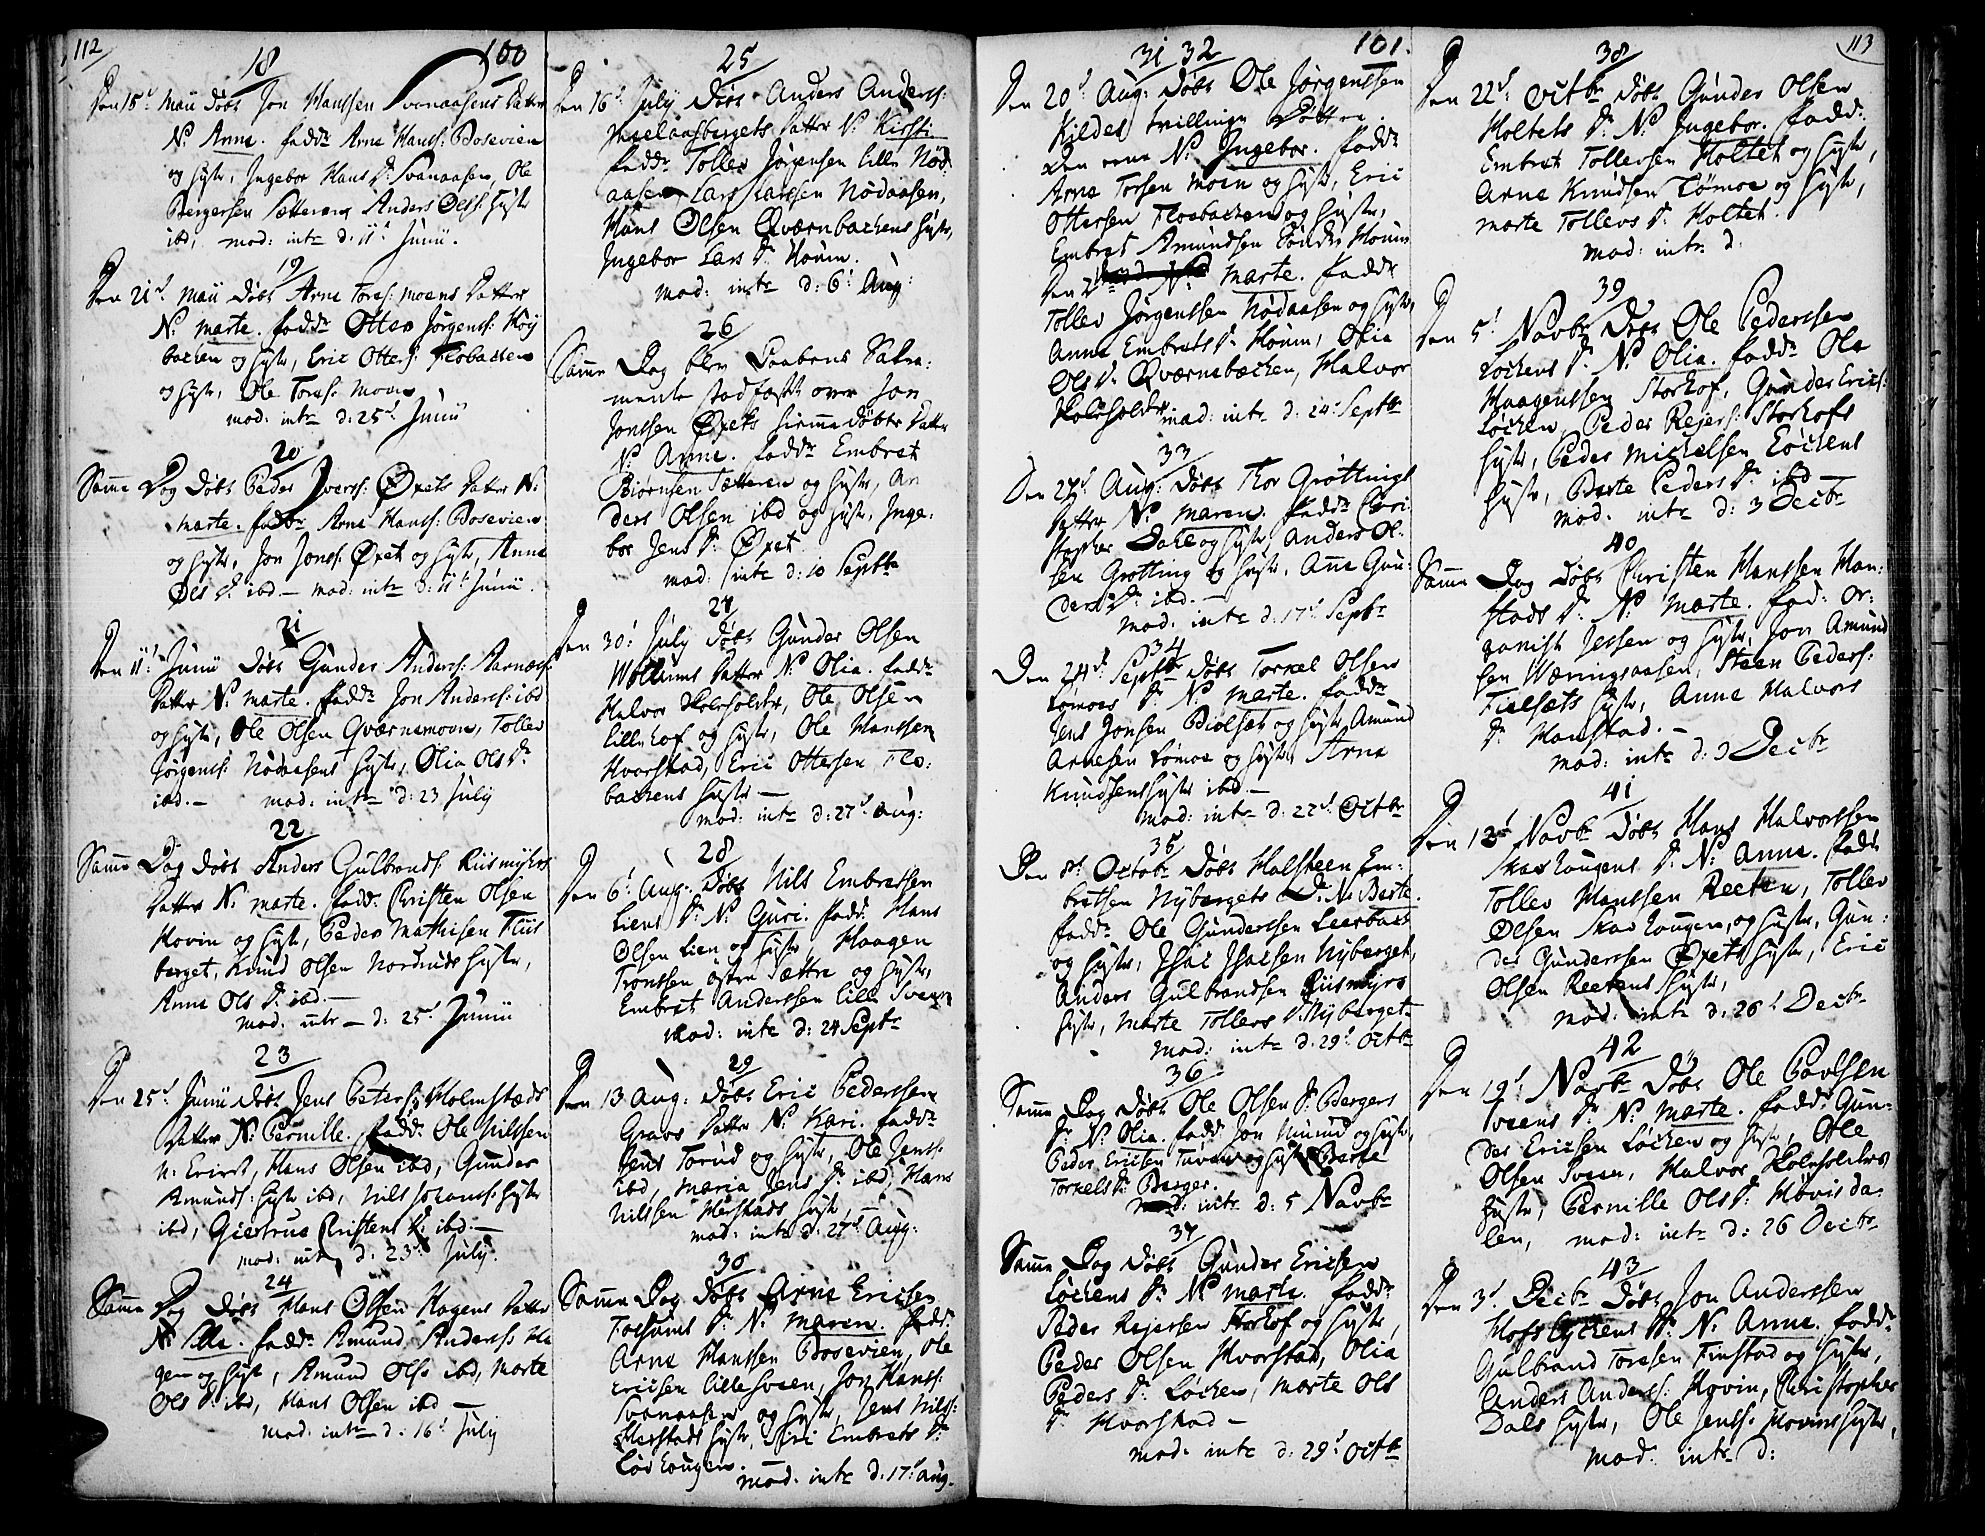 112
100
18
Den 15de Maii döbt Jon Hanssen Svenaasens Datter
N: Anne. fadd: Arne Hans: Bosevien
og hustr, Ingebor Hans D: Svenaasen, Ole
Bergersen Sætteren Anders Oels: hustr
ibd, mod: intr d: 11t Junii.
19
Den 21d Maii döbt Arne Tores: moens Datter
N: Marte. fadd: Otter Jörgens: Höy
bachen og hustr, Eric Otters: Flobachen
og hustr, Ole Tores: Moen
mod: intr d: 25d Junii
20
Samme Dag döbt Peder Ivers: Öxets Datter N:
Marte. fadd: Arne Hans: Bosevien
og hustr, Jon Jons: Öxet og hustr, Anne
Oels D: ibd — mod: intr d: 11t Junii.
21
Den 11t Junii döbt Gunder Anders: Aarnes:
Datter N: Marte. fadd: Jon Anders: ibd
og hustr, Ole Olsen Qværnemoen, Tollev
Jörgens: Nödaasens hustr, Olia Ols D:
ibd. — mod: intr d: 23 July
22
Samme Dag döbt Anders Gulbrands: Riismyhrs
Datter N: Marte. fadd: Christen Olsen
Hovin og hustr, Peder Mathisen Fliis
berget, Knud Olsen Nordruds hustr,
Anne Ols D: ibd. —
mod: intr — d: 25d Junii
23
Den 25d Junii döbt Jens Peters: Holmstads
Datter N: Pernille. fadd: Ole Nilssen
Hans Olsen ibd, Gunder
Amunds: hustr ibd, Nils Johans: hustr
ibd, Giertrue Christens D: ibd. —
mod: intr d: 23de July.
24
Samme Dag döbt Hans Olsen Hagens Datter
N: Sille. fadd: Amund Anders: Ha
gen og hustr, Amund Ols: ibd, Marte
Ols D: ibd, Hans Olsen ibd —
mod: intr d: 16d July
25
Den 16d July döbt Anders Anders:
Datter N: Kirsti
fadd: Tollev Jörgensen lille Nöd
aasen Lars Larssen Nödaasen,
Hans Olsen Qværnbachens hustr,
Ingebor Lars D: Houm.
mod: intr d: 6t Aug:
26
Samme Dag blev Daabens Sakra:
mente stadfæst over Jon
Jonssen Öxets hiemmedöbte Datter
N: Anne. fadd: Embret
Biörnsen Sætteren og hustr, An
ders Olsen ibd og hustr, Inge:
bor Jens D: Öxet.
mod: intr d: 10 Septbr
27
Den 30t July döbt Gunder Olsen
Wolliums Datter N: Olia. fadd:
Halvor Skoleholder, Ole Olsen
lille hof og hustr, Ole Hanssen
Hvorstad, Eric Ottersen Flo:
bachens hustr —
mod: intr d: 27d Aug:
28
Den 6t Aug: döbt Nils Embretsen
Liens D: N: Guri. fadd: Hans
Olsen Lien og hustr, Haagen
Trontsen östre Sættre og hustr,
Embret Andersen lille Sveen
mod: intr d: 24 Septr
29
Den 13 Aug: döbt Eric Pederssen
Graves Datter N: Kari. fadd:
Jens Torud og hustr, Ole Jens:
ibd, Maria Jens D: ibd, Hans
Nilssen Herstads hustr
mod: intr d: 27d Aug:
30
Samme Dag döbt Arne Ericsen
D: N: Maren. fadd:
Arne Hanssen Bosevien, Ole
Ericsen lille Sveen, Jon Hans:
Svenaasen og hustr, Jens Nils:
Herstads hustr, Siri Embrets D:
Löchougen.
mod: intr d: 17d Aug.
101.
113
31 32
Den 20d Aug: döbt Ole Jörgenssen
Kildes tvillinge Döttre.
Den ene N: Ingebor. fadd:
Arne Torsen Moen og hustr, Eric
Ottersen Flobachen og hustr,
Embret Amundsen Sönder Houm
Den 2 N: Marte. fadd:
Tollev Jörgenssen Nödaasen og hustr,
Anne Embrets D: Houm, Olia
Ols D: Qværnebachen, Halvor
Skoleholder mad: intr d: 24t Septbr
33
Den 27d Aug: döbt Thor Gröttings
Datter N: Maren. fadd: Chri
stopher Dahl og hustr, Anders Ol:
sen Grötting og hustr, Anne Gun:
ders D: ibd. —
mod: intr d: 17d Septbr
34
Den 24d Septbr döbt Torkel Olsen
Lömoes D: N: Marte. fadd:
Jens Jonsen Biölset og hustr, Amund
Arnesen Lömoe og hustr, Arne
Knudsens hustr ibd. —
mod: intr d: 22d Octbr
35
Den 8t Octobr döbt Halsteen Em:
bretsen Nybergets D: N: Berte.
fadd: Ole Gundersen Leerbach
og hustr, Isac Isacsen Nyberget,
Anders Gulbrandsen Riismyrs
hustr, Marte Tollevs D: Nyberget
mod: intr d: 29t Octbr
36
Samme Dag döbt Ole Olsen D: Bergers
D: N: Olia. fadd: Jon og hustr,
Peder Ericsen og hustr Berte
Torkels D: Berger.
mod: intr d: 5 Novbr
37
Samme Dag döbt Gunder Ericsen
Löchens D: N: Marte. fadd:
Peder Rejersen Storhof og hustr,
Peder Olsen Hvorstad, Olia
Peders D: Löchen, Marte Ols
D: Hvorstad —
mod: intr d: 29d Octbr
38
Den 22d Octbr döbt Gunder Olsen
Holtets D: N: Ingebor. fadd:
Embret Tollevsen Holtet og hustr,
Arne Knudsen Lömoe og hustr,
Marte Tollevs D: Holtet.
mod: intr d:
39
Den 5t Novbr döbt Ole Pedersen
Löchens D: N: Olia. fadd: Ole
Haagenssen Storhof, Gunder Erics:
Löchen, Peder Rejers: Storhofs
hustr, Peder Michelsen Löchens
hustr, Berte Peders D: ibd —
mod: intr d: 3 Decbr
40
Samme Dag döbt Christen Hanssen Han:
stads D: N: Marte. fad: Or:
Jessen og hustr, Jon Amund
sen Wæringsaasen, Steen Peders:
Fielsets hustr, Anne Halvors
D: Hanstad. —
mod: intr d: 3 Decbr
41
Den 12t Novbr döbt Hans Halvorsen
Skavhougens D: N: Anne. fadd:
Tollev Hanssen Reeten, Tollev
Olsen Skavhougen, og hustr, Gun:
der Gunderssen Öxets hustr, Eric
Olsen Reetens hustr,
mod: intr d: 26t Decbr
42
Den 19d Novbr döbt Ole Povelsen
Sveens D: N: Marte. fadd: Gun:
der Ericsen Löchen og hustr, Ole
Olsen Sveen, Halvor Skoleholders
hustr, Pernille Ols D: Hovisda:
len, mod: intr d: 26 Decbr
43
Den 3d Decbr döbt Jon Anderssen
Hofslychens D: N: Anne. fadd:
Gulbrand Toresen Finstad og hustr,
Anders Anders: Hovin, Christopher
Dals hustr, Ole Jens: Hovins hustr,
mod: intr d: